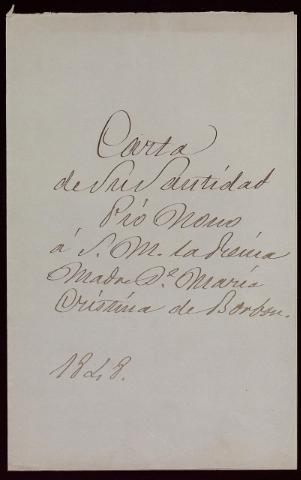 Carta
de Su Santidad
Pió Nono
á S. M. la Reina
Madre Dª María
Cristina de Borbon.
1848.